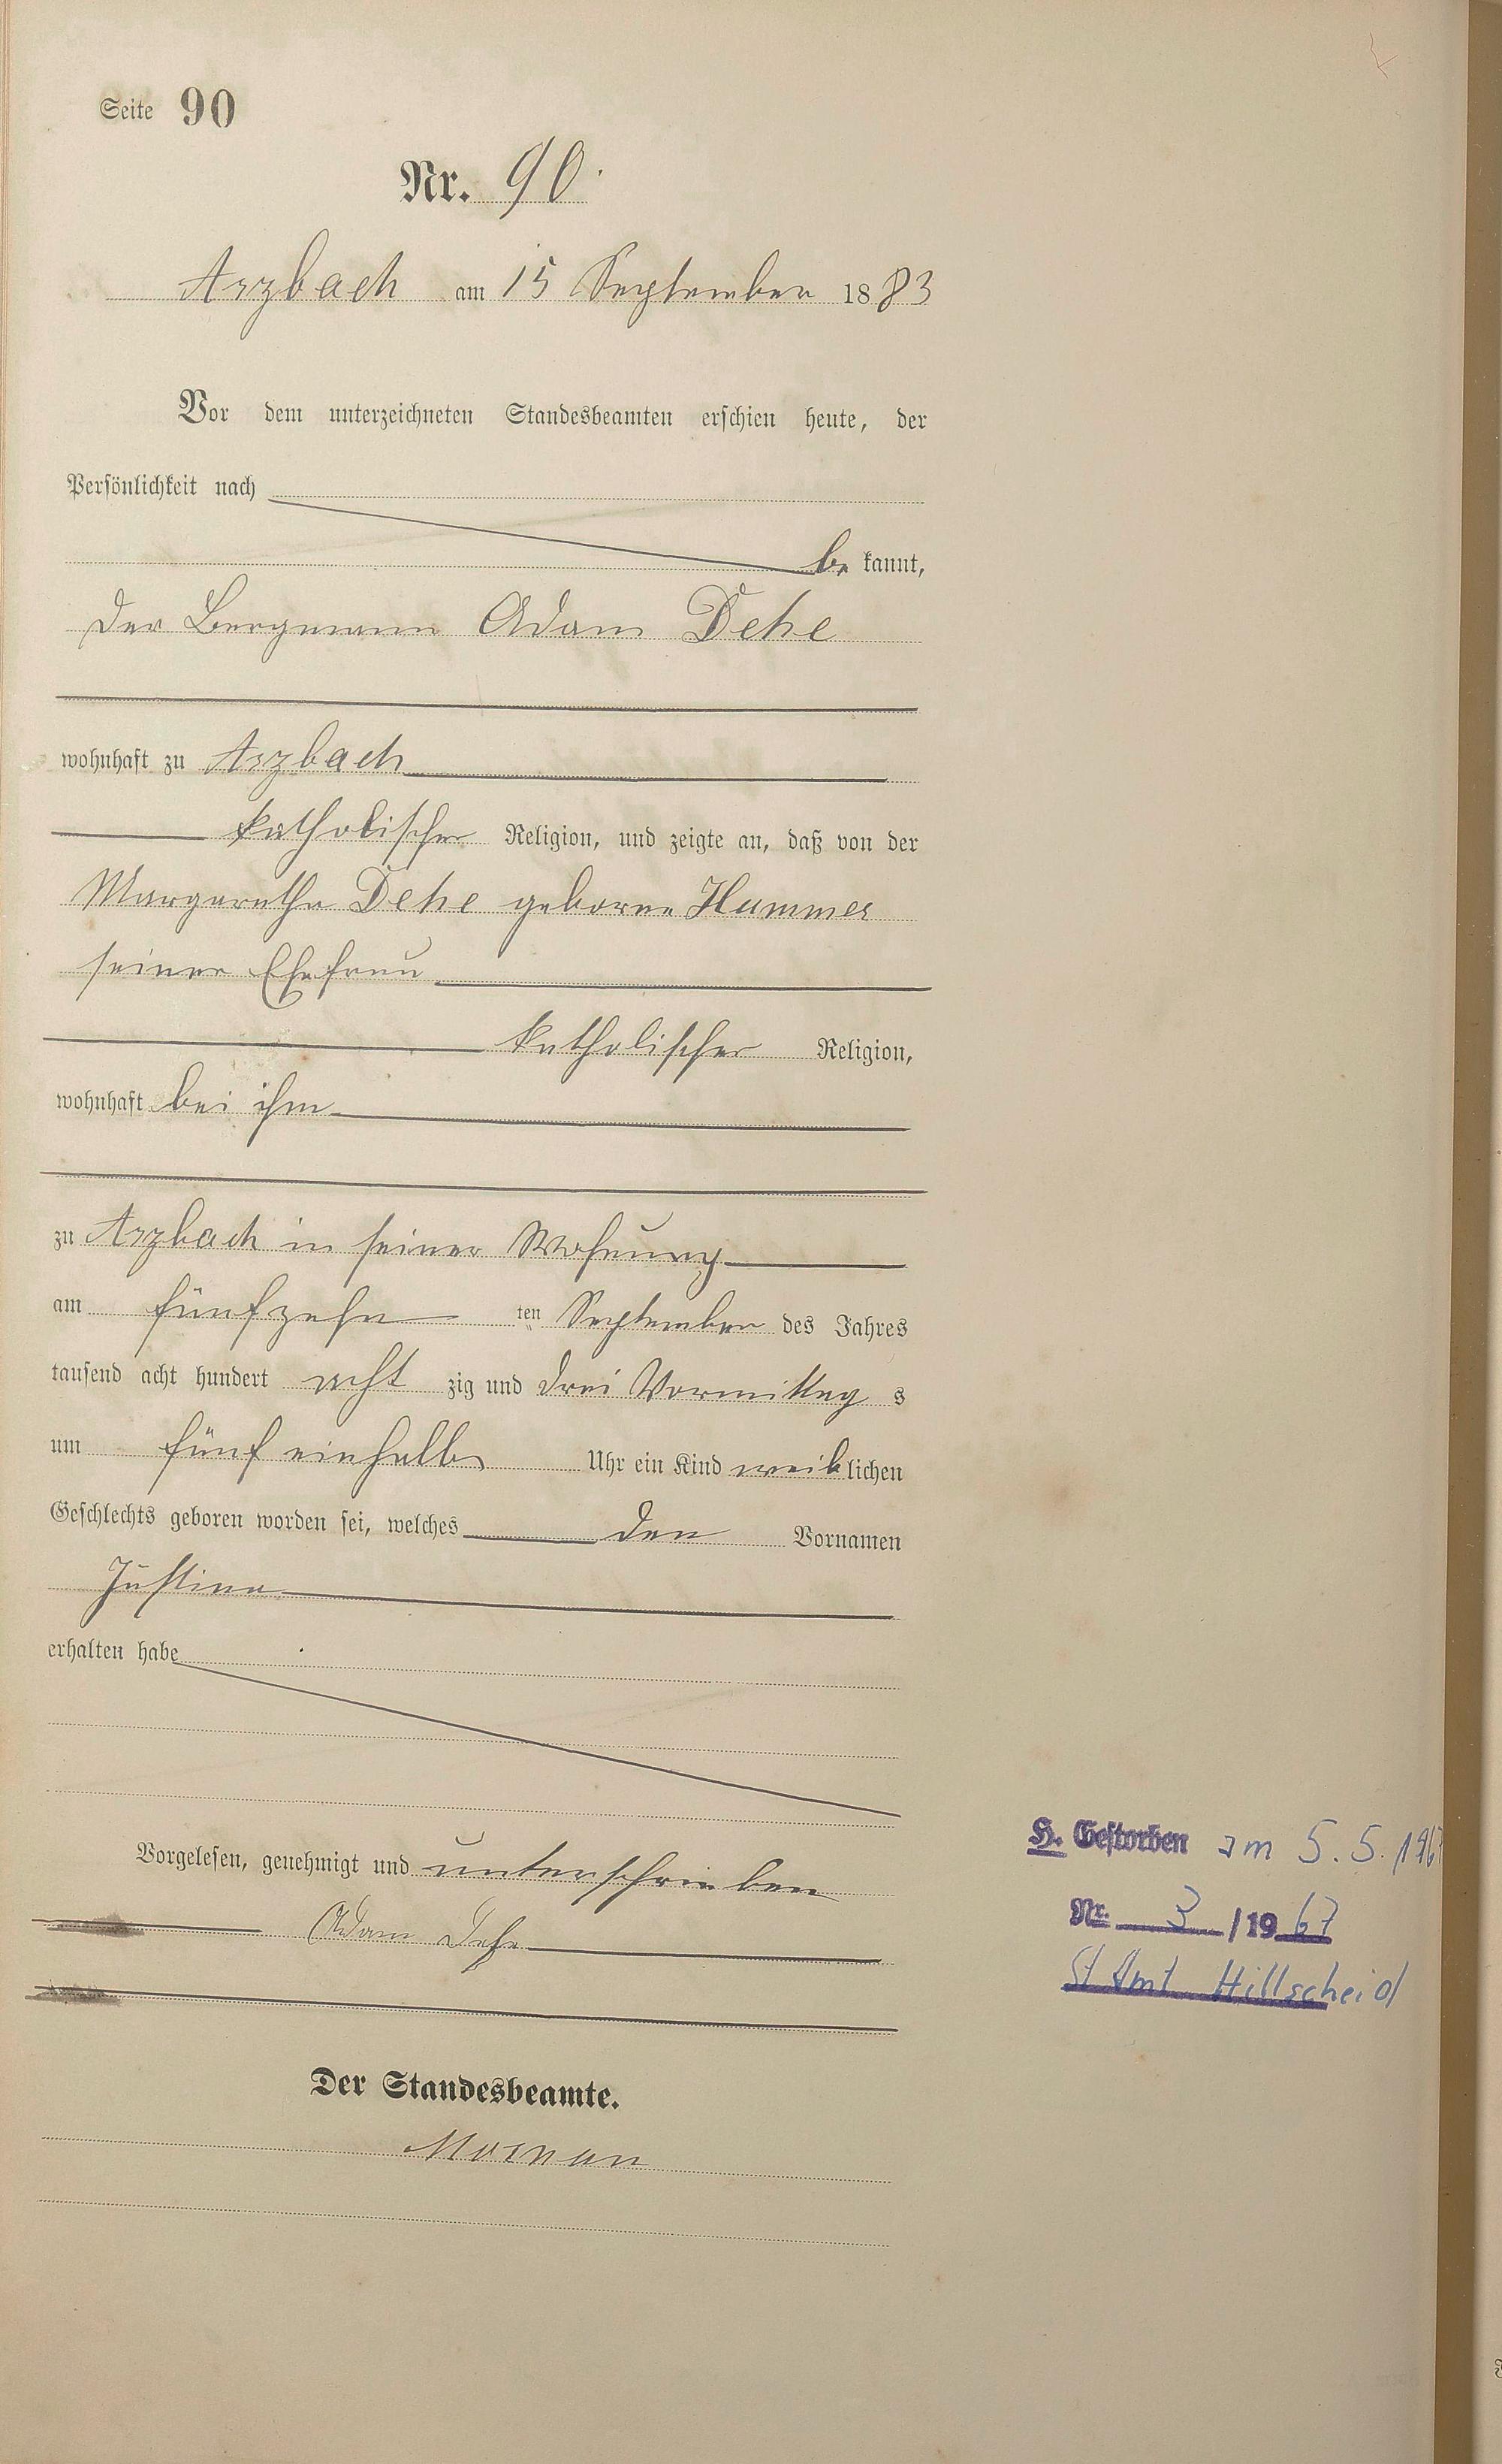 Seite 90
Nr. 90.
Arzbach am 15 September 1883
Vor dem unterzeichneten Standesbeamten erschien heute, der
Persönlichkeit nach
be kannt,
der Bergmann Adam Dehe
wohnhaft zu Arzbach
katholischer Religion, und zeigte an, daß von der
Margarethe Dehe geborne Hammer
seiner Ehefrau
katholischer Religion,
wohnhaft bei ihm
zu Arzbach in seiner Wohnung
am fünfzehn ten September des Jahres
tausend acht hundert acht zig und drei Vormittag s
um fünf einhalb Uhr ein Kind weiblichen
Geschlechts geboren worden sei, welches den Vornamen
Justina
erhalten habe
Vorgelesen, genehmigt und unterschrieben
Adam Dehe
Der Standesbeamte.
H. Gestorben am 5.5.1967
Nr. 3 /1967
St Amt Hillscheid